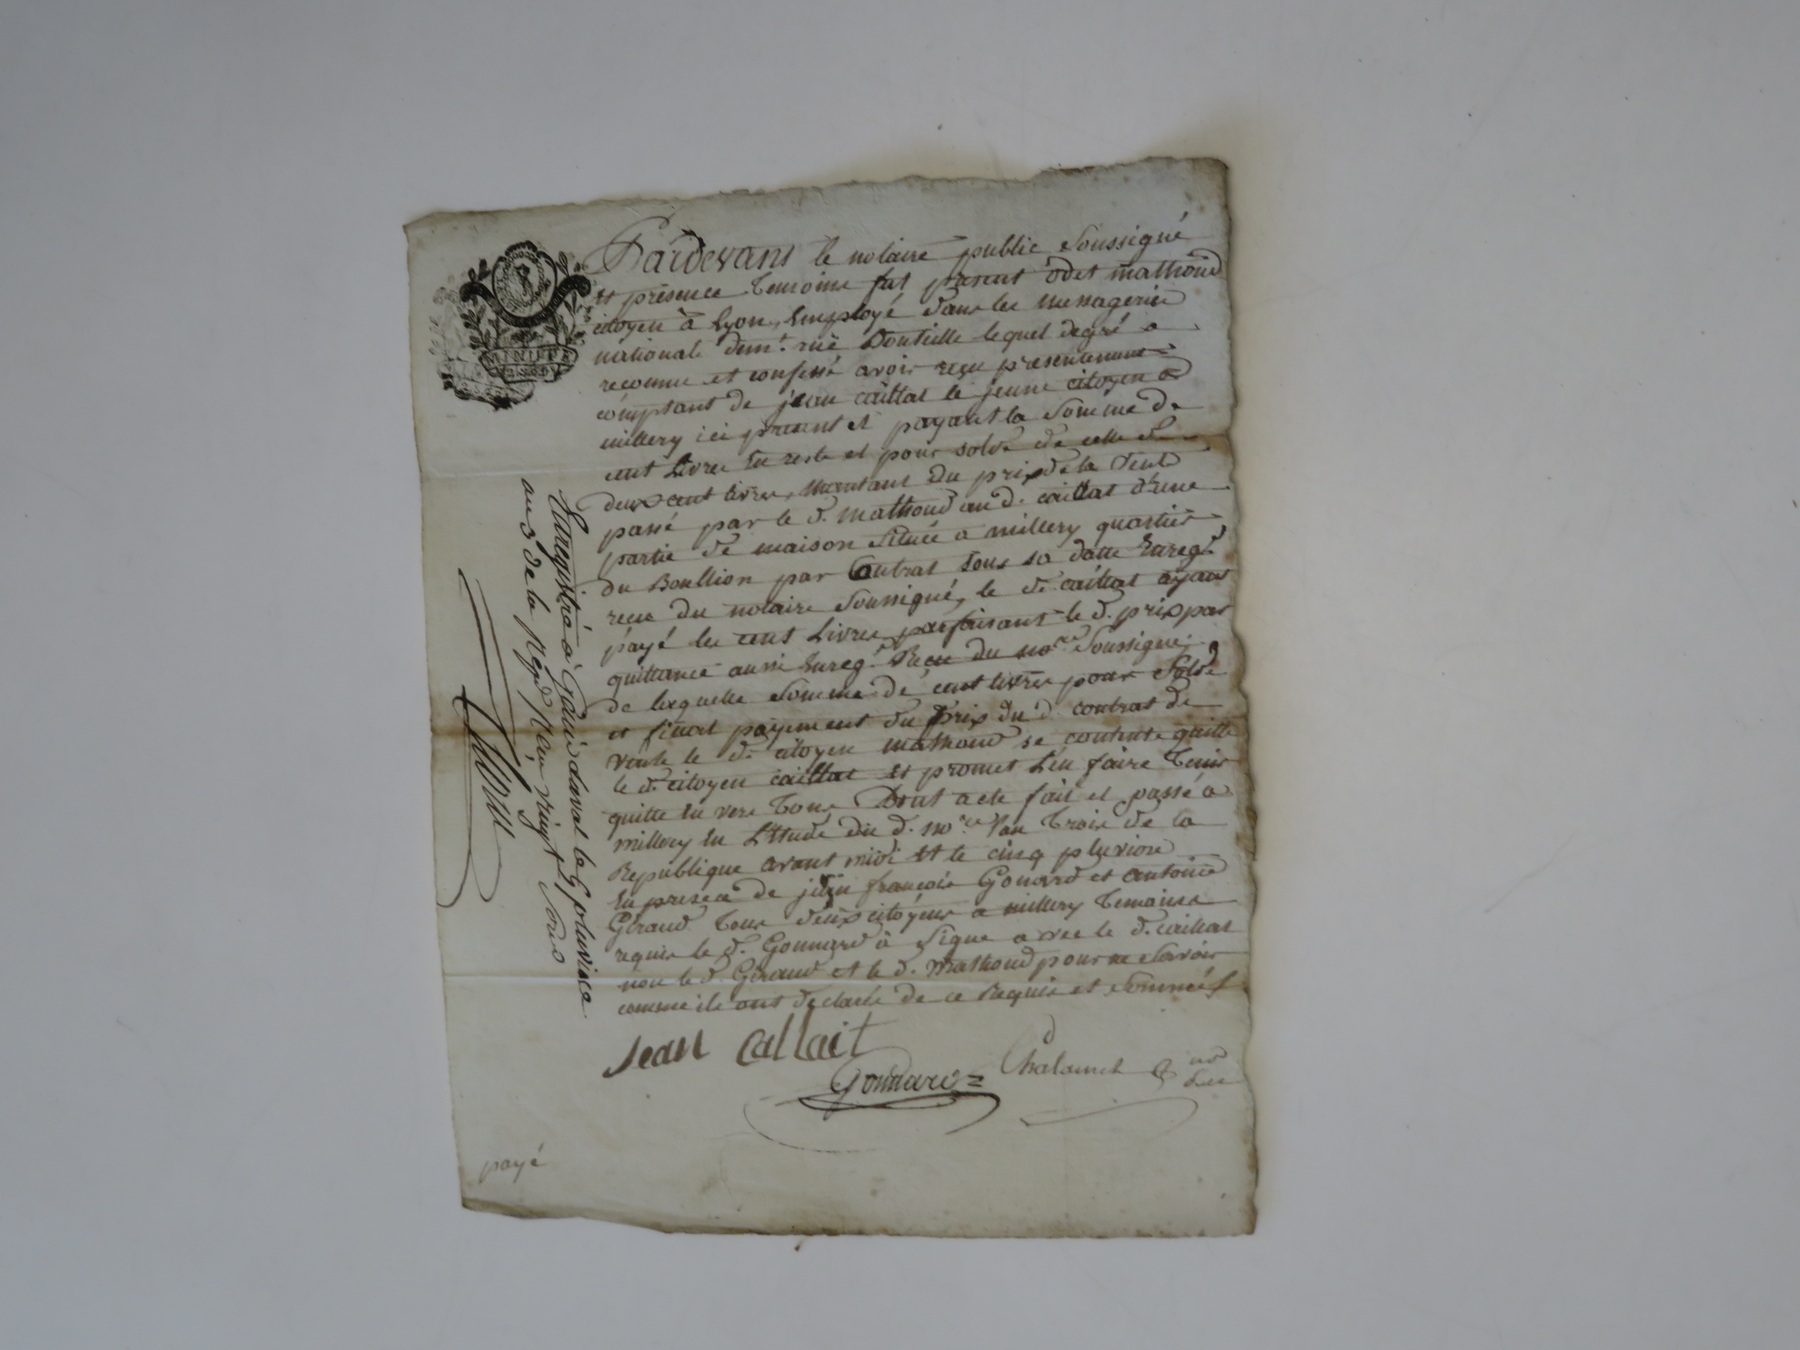 Pardevant le notaire public soussigné
et présence temoins fut présent odet mathoud
citoyen à Lyon, Employé dans les messageries
nationale demt. rüe Bouteille lequel degré a
reconnu et confessé avoir reçu présentement
comptant de jean caillat le jeune citoyen a
millery ici présent et payant la somme de
cent Livres En reste et pour solde de celle de
deux cent livres, montant du prix de la vente
passé par le d. mathoud au d. caillat d'une
partie de maison située a millery quartier
du Boullion par Contrat sous sa datte Enregé
recu du notaire soussigné, le d. caillat ayant
payé les cent Livres parfaisant le d. prix par
quittance aussi Enreg. Recu du nore soussigné,
de laquelle somme de cent livres pour solde
et final payement du Prix du d. contrat de
vente le d. citoyen mathoud se contente quitte
le d. citoyen caillat et promet L'en faire Tenir
quitte En vers Tous Dont acte fait et passé a
millery En L'Etude du d. nore L'an Trois de la
Republique avant midi et le cinq pluviose
En présence de jean françois Gonnard et antoine
Géraud Tous deux citoyens a millery Temoins
requis le d. Gonnard à signé avec le d. caillat
non le d. Géraud et le d. Mathoud pour ne savoir
comme ils ont declaré de ce Requis et sommés
Jean Callait
Gonnard Chalamel
payé
Enregistré à Genis daval le 9 pluviose
an 3 de la Répd Reçu vingt sous
UNITE